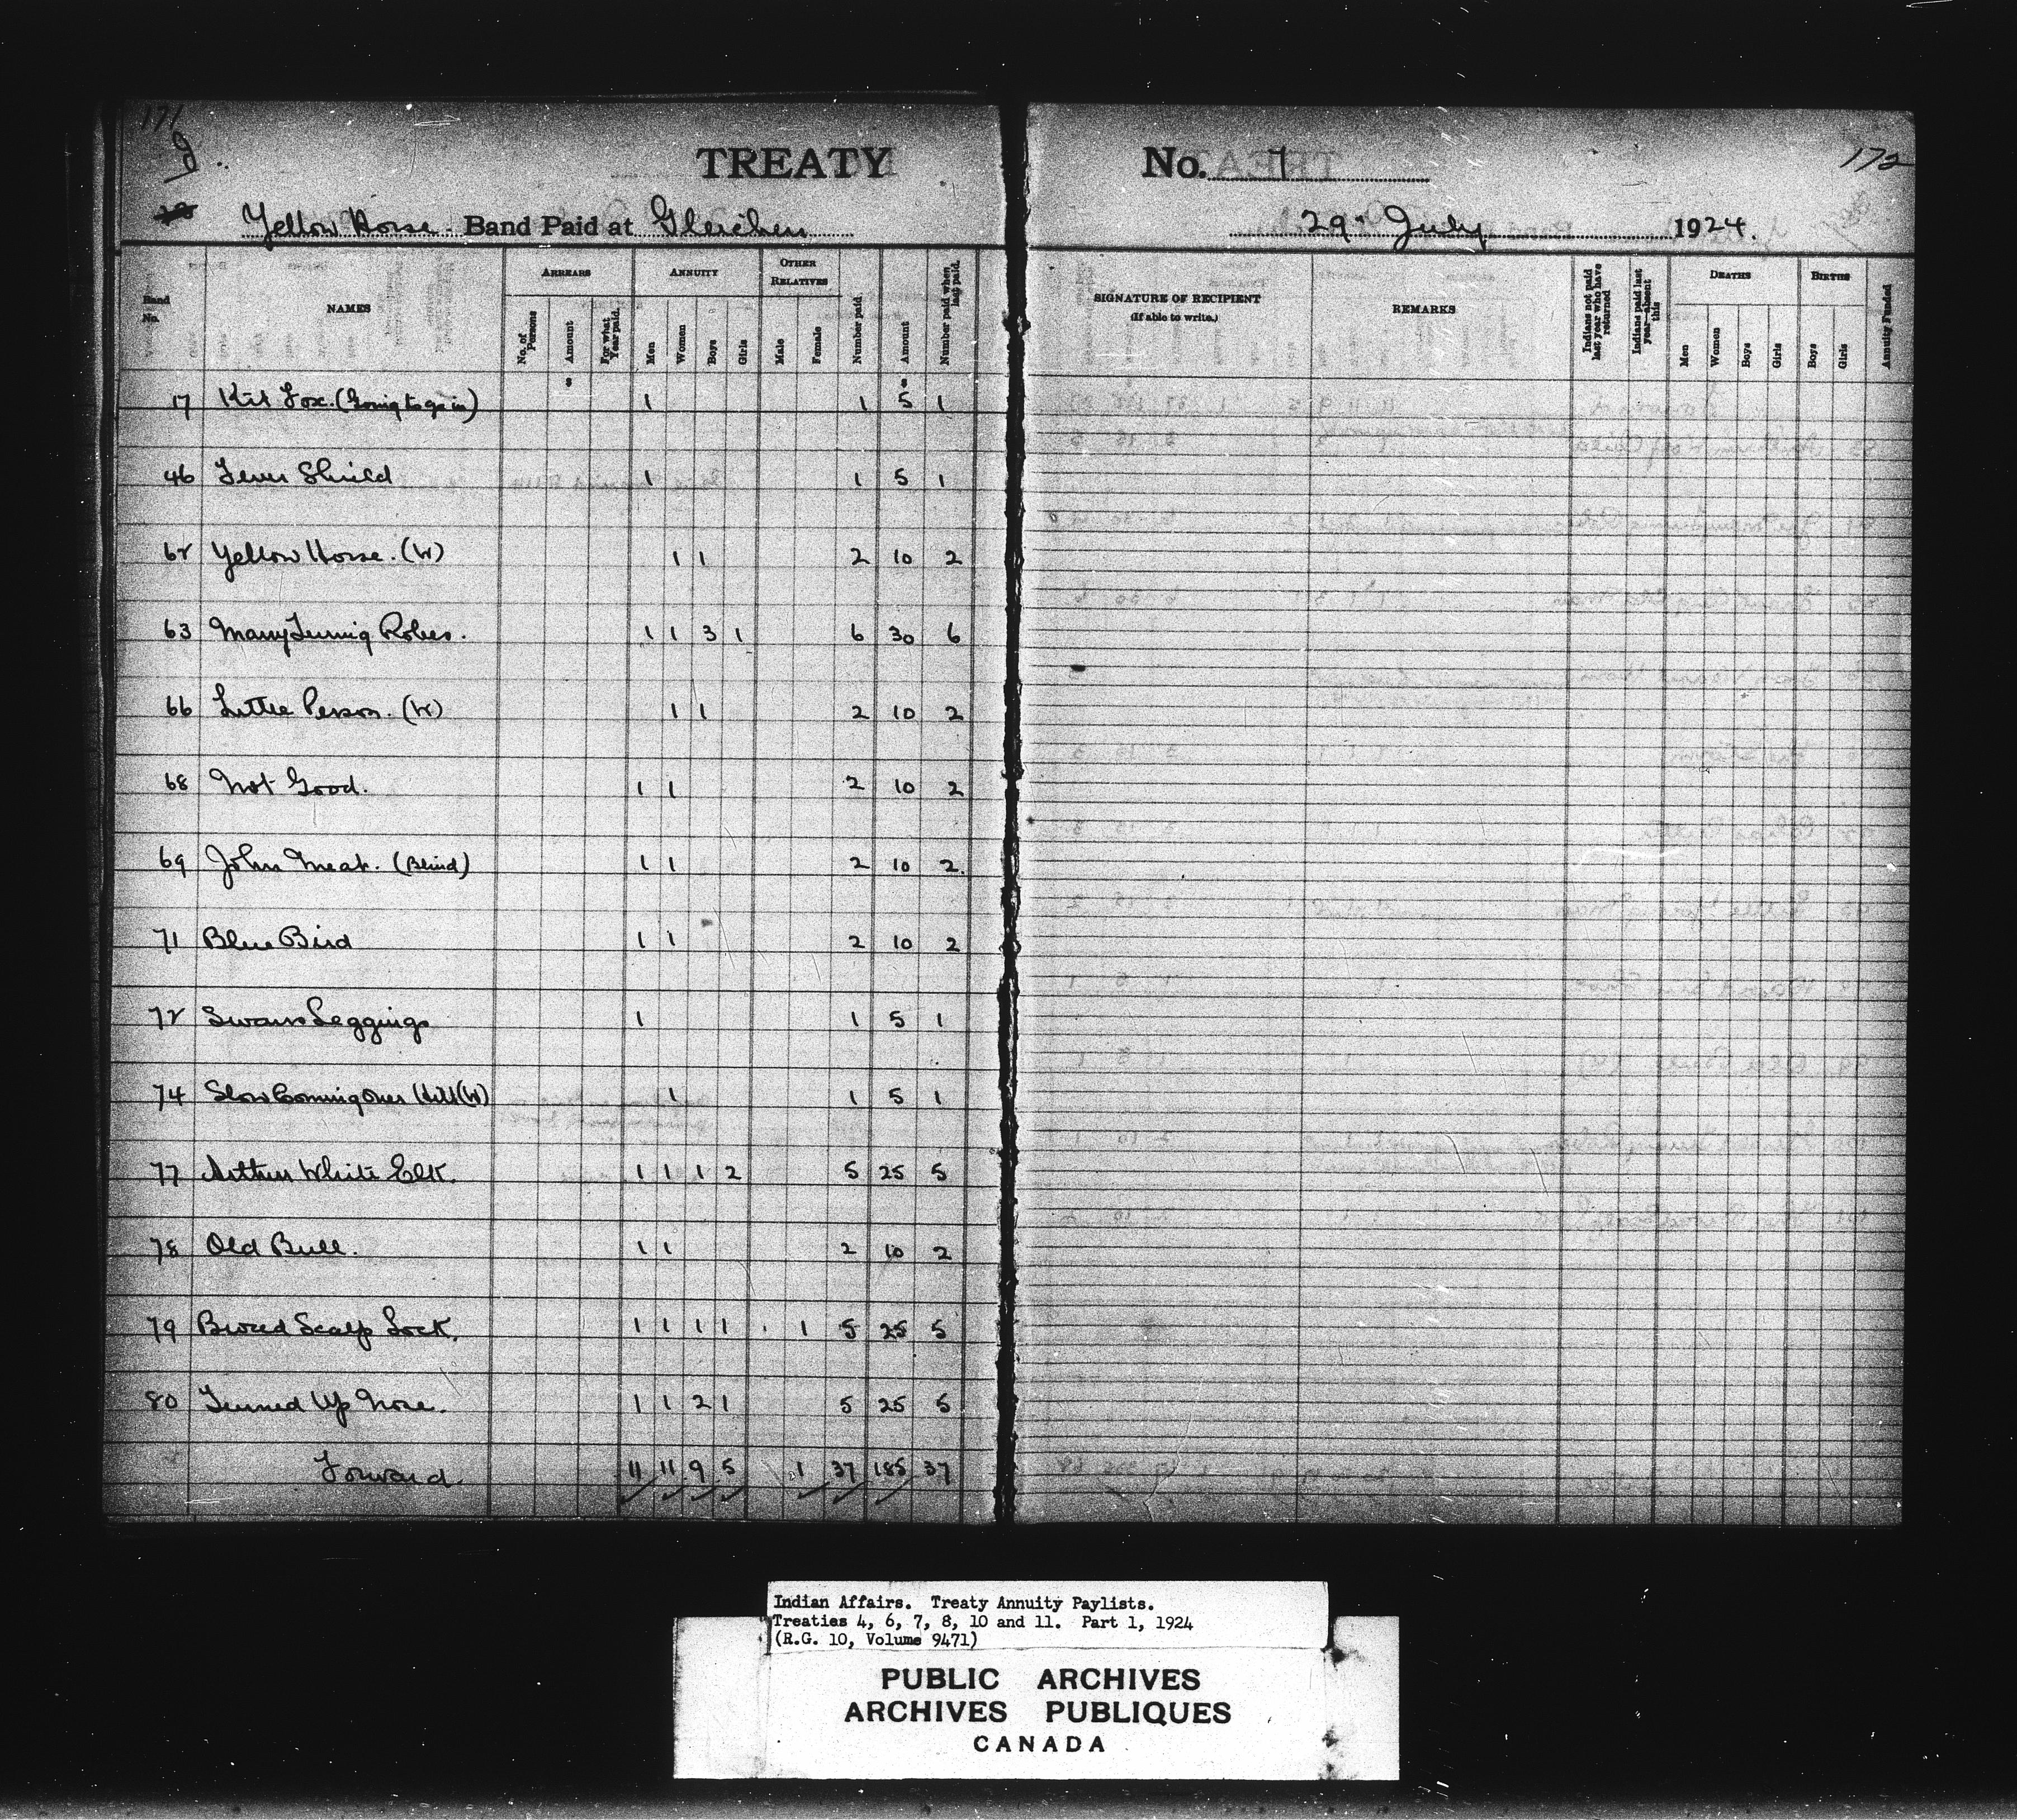 171
172
9
TREATY No. 7
Yellow Horse Band Paid at Gleichen 29th July 1924.
Band No.
NAMES
ARREARS
No. of Persons
Amount
For what Year paid.
ANNUITY
Men
Women
Boys
Girls
OTHER RELATIVES
Male
Female
Number paid.
Amount
Number paid when last paid.
SIGNATURE OF RECIPIENT
(If able to write.)
REMARKS
Indians not paid last year who have returned
Indians paid last year—absent this
DEATHS
Men
Women
Boys
Girls
BIRTHS
Boys
Girls
Annuity Funded
17 Kit Fox. (Going to go in) 1 1 5 1
46 Shield 1 1 5 1
62 Yellow Horse. (W) 1 1 2 10 2
63 Many Turning Robes. 1 1 3 1 6 30 6
66 Little Person. (W) 1 1 2 10 2
68 Not Good. 1 1 2 10 2
69 John Meat. (Blind) 1 1 2 10 2.
71 Blue Bird 1 1 2 10 2
72 Swans Leggings 1 1 5 1
74 Slow Coming Over Hill (W) 1 1 5 1
77 Arthur White Elk. 1 1 1 2 5 25 5
78 Old Bull. 1 1 2 10 2
79 Scalp Lock. 1 1 1 1 1 5 25 5
80 Turned Up Nose. 1 1 2 1 5 25 5
Forward. 11 11 9 5 1 37 185 37
Indian Affairs. Treaty Annuity Paylists.
Treaties 4, 6, 7, 8, 10 and 11. Part 1, 1924
(R.G. 10, Volume 9471)
PUBLIC ARCHIVES
ARCHIVES PUBLIQUES
CANADA